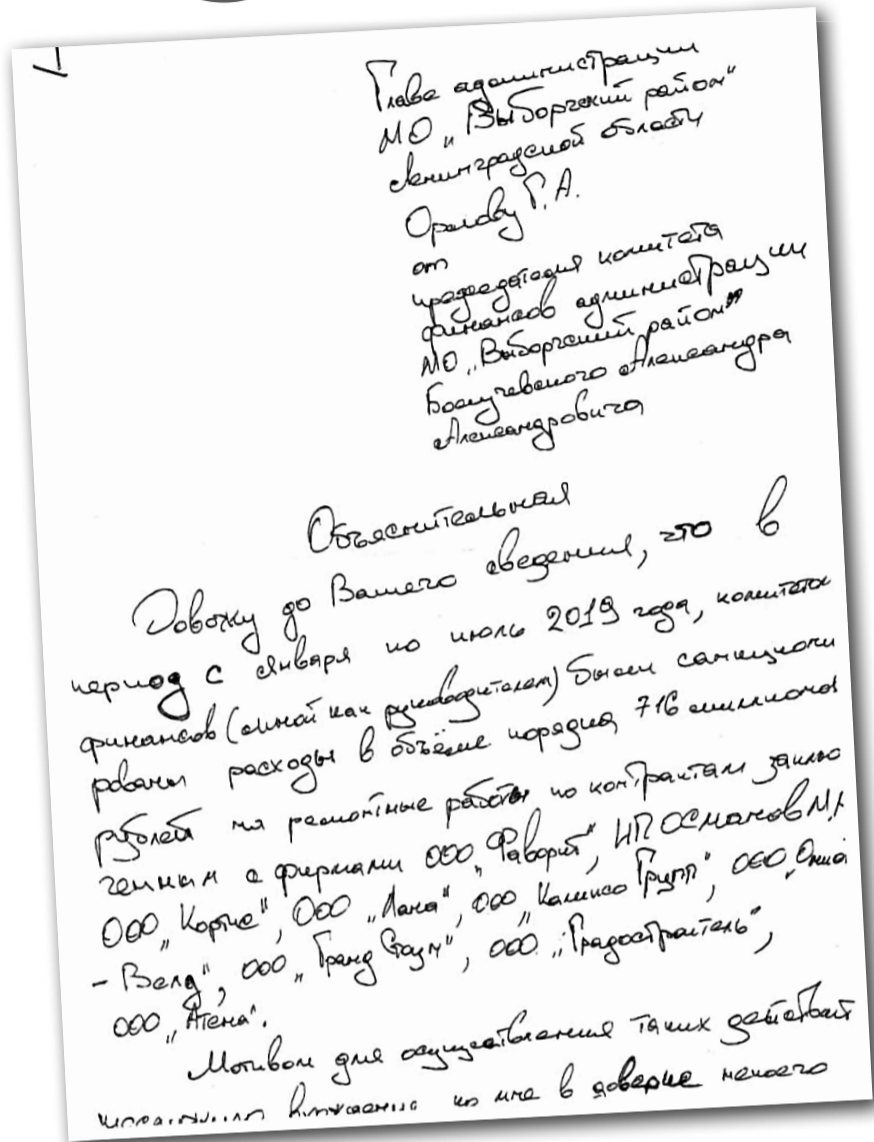 Главе администрации
МО „Выборгский район"
Ленинградской области
Орлову Г. А.
от
председателя комитета
финансов администрации
МО „Выборгский район"
Болучевского Александра
Александровича
Объяснительная
Довожу до Вашего сведения, что в
период с января по июль 2019 года, комитетом
финансов (мной как руководителем) были санкциони
рованы расходы в объёме порядка 716 миллионов
рублей на ремонтные работы по контрактам заклю
ченным с фирмами ООО „Фаворит", ИП Османов М.
ООО „Корпус", ООО „Лана", ООО „Калипсо Групп", ООО
- Велд", ООО „Гранд Стоун", ООО „Градостроитель",
ООО „Атена".
Мотивом для осуществления таких действий
ко мне в доверие некоего